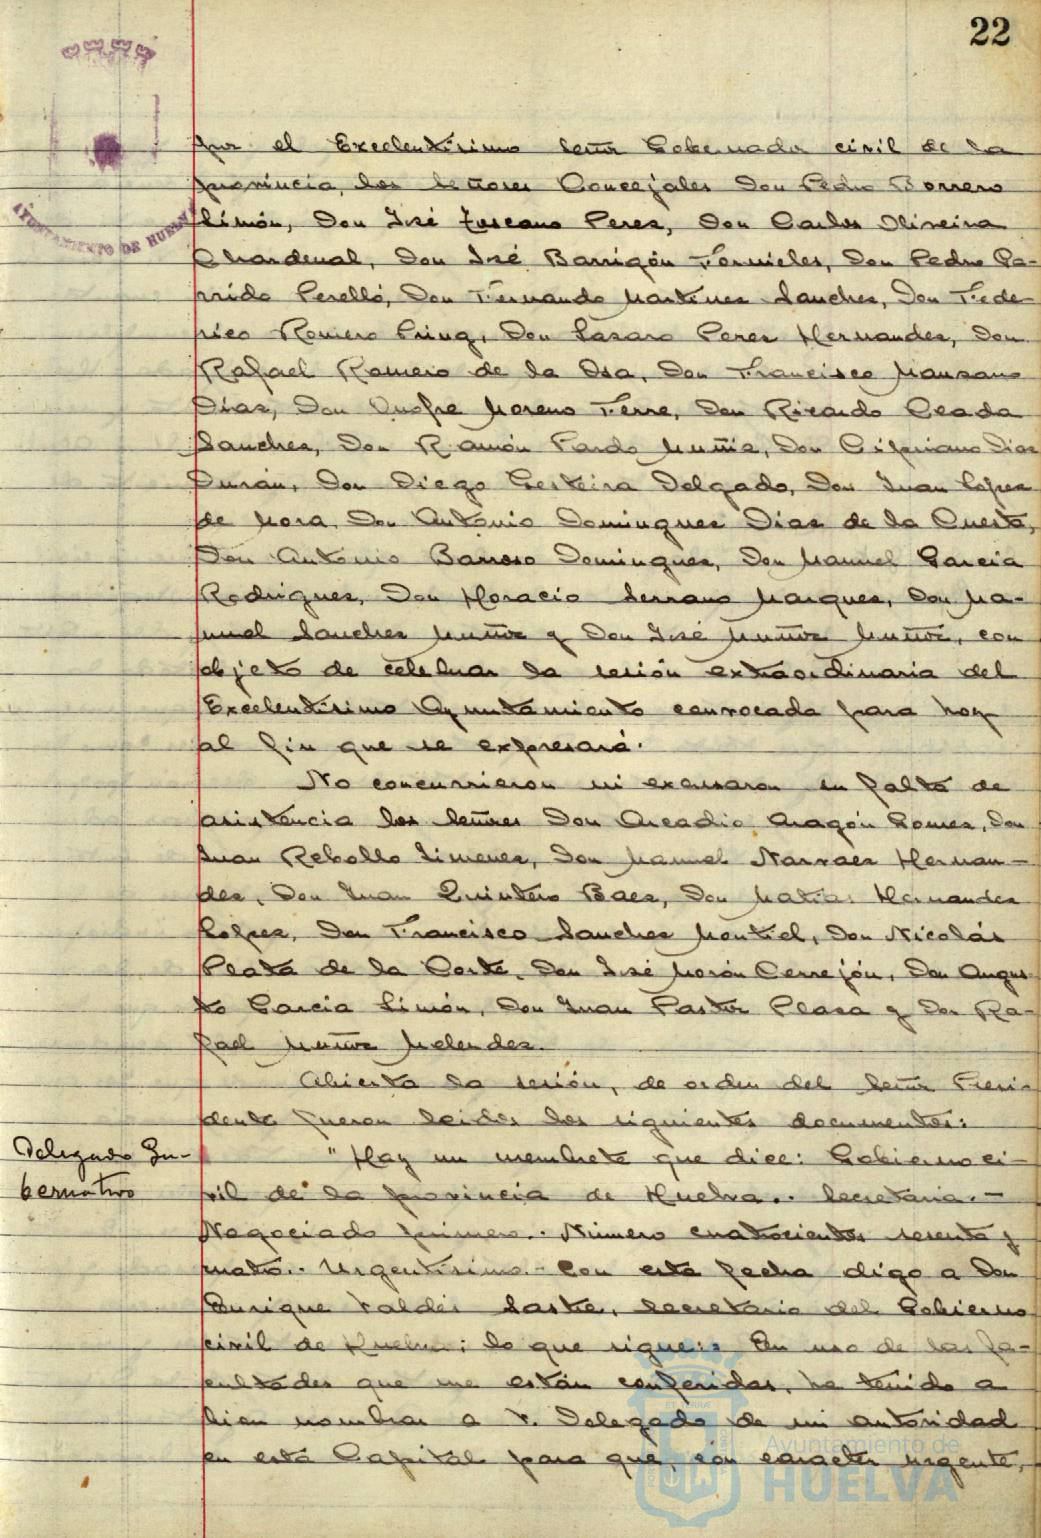 22
AYUNTAMIENTO DE HUELVA
por el Excelentísimo Señor Gobernador civil de la
provincia, los Señores Concejales Don Pedro Borrero
Limón, Don José Toscano Perez, Don Carlos Oliveira
Chardenal, Don José Barrigón Fornieles, Don Pedro Ga-
rrido Perelló, Don Fernando Martinez Sanchez, Don Fede-
rico Romero Pring, Don Lazaro Perez Hernandez, Don
Rafael Romero de la Osa, Don Francisco Manzano
Diaz, Don Onofre Moreno Ferre, Don Ricardo Ceada
Sanchez, Don Ramón Pardo Muñiz, Don Cipriano Diaz
Durán, Don Diego Gesteira Delgado, Don Juan López
de Mora, Don Antonio Dominguez Diaz de la Cuesta,
Don Antonio Barroso Dominguez, Don Manuel Garcia
Rodriguez, Don Horacio Serrano Marquez, Don Ma-
nuel Sanchez Muñoz y Don José Muñoz Muñoz, con
objeto de celebrar la sesión extraordinaria del
Excelentísimo Ayuntamiento convocada para hoy
al fin que se expresará.
No concurrieron ni excusaron su falta de
asistencia los Señores Don Arcadio Aragón Gomez, Don
Juan Rebollo Jimenez, Don Manuel Narvaez Hernan-
dez, Don Juan Quintero Baez, Don Matias Hernandez
López, Don Francisco Sanchez Montiel, Don Nicolás
Plata de la Corte, Don José Morón Cerrejón, Don Augus-
to Garcia Limón, Don Juan Pastor Plaza y Don Ra-
fael Muñoz Melendez.
Abierta la sesión, de orden del Señor Presi-
dente fueron leidos los siguientes documentos:
Delegado Gu-
bernativo
"Hay un membrete que dice: Gobierno ci-
vil de la provincia de Huelva.. Secretaria.-
Negociado primero.. Número cuatrocientos sesenta y
cuatro.. Urgentísimo.- Con esta fecha digo a Don
Enrique Valdés Sastre, Secretario del Gobierno
civil de Huelva; lo que sigue: En uso de las fa-
cultades que me están conferidas, he tenido a
bien nombrar a V. Delegado de mi autoridad
en esta Capital para que, con caracter urgente,
Ayuntamiento de
HUELVA